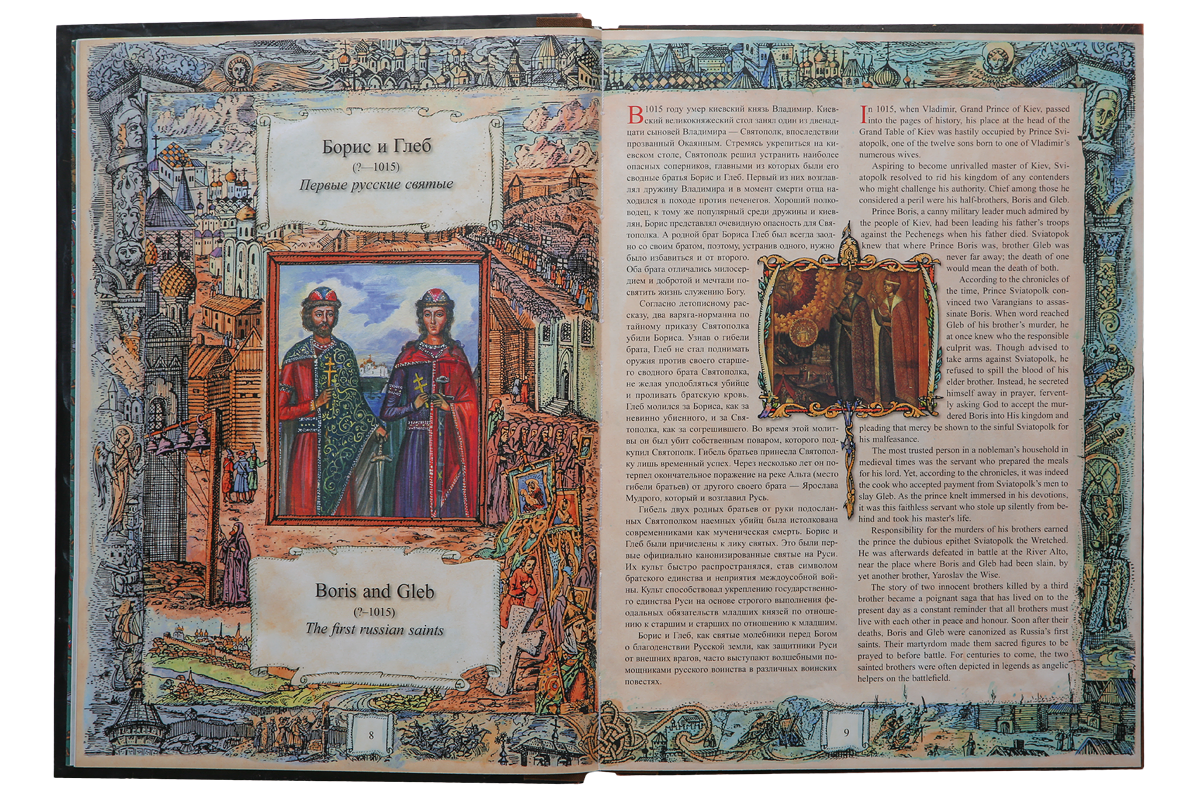 Борис и Глеб
(?—1015)
Первые русские святые
Boris and Gleb
(?–1015)
The first russian saints
8
В 1015 году умер киевский князь Владимир. Киев-
ский великокняжеский стол занял один из двенад-
цати сыновей Владимира — Святополк, впоследствии
прозванный Окаянным. Стремясь укрепиться на ки-
евском столе, Святополк решил устранить наиболее
опасных соперников, главными из которых были его
сводные братья Борис и Глеб. Первый из них возглав-
лял дружину Владимира и в момент смерти отца на-
ходился в походе против печенегов. Хороший полко-
водец, к тому же популярный среди дружины и киев-
лян, Борис представлял очевидную опасность для Свя-
тополка. А родной брат Бориса Глеб был всегда заод-
но со своим братом, поэтому, устранив одного, нужно
было избавиться и от второго.
Оба брата отличались милосер-
дием и добротой и мечтали по-
святить жизнь служению Богу.
Согласно летописному рас-
сказу, два варяга-норманна по
тайному приказу Святополка
убили Бориса. Узнав о гибели
брата, Глеб не стал поднимать
оружия против своего старше-
го сводного брата Святополка,
не желая уподобляться убийце
и проливать братскую кровь.
Глеб молился за Бориса, как за
невинно убиенного, и за Свя-
тополка, как за согрешившего. Во время этой молит-
вы он был убит собственным поваром, которого под-
купил Святополк. Гибель братьев принесла Святопол-
ку лишь временный успех. Через несколько лет он по-
терпел окончательное поражение на реке Альта (место
гибели братьев) от другого своего брата — Ярослава
Мудрого, который и возглавил Русь.
Гибель двух родных братьев от руки подослан-
ных Святополком наемных убийц была истолкована
современниками как мученическая смерть. Борис и
Глеб были причислены к лику святых. Это были пер-
вые официально канонизированные святые на Руси.
Их культ быстро распространялся, став символом
братского единства и неприятия междоусобной вой-
ны. Культ способствовал укреплению государственно-
го единства Руси на основе строгого выполнения фе-
одальных обязательств младших князей по отноше-
нию к старшим и старших по отношению к младшим.
Борис и Глеб, как святые молебники перед Богом
о благоденствии Русской земли, как защитники Руси
от внешних врагов, часто выступают волшебными по-
мощниками русского воинства в различных воинских
повестях.
In 1015, when Vladimir, Grand Prince of Kiev, passed
into the pages of history, his place at the head of the
Grand Table of Kiev was hastily occupied by Prince Svi-
atopolk, one of the twelve sons born to one of Vladimir's
numerous wives.
Aspiring to become unrivalled master of Kiev, Svi-
atopolk resolved to rid his kingdom of any contenders
who might challenge his authority. Chief among those he
considered a peril were his half-brothers, Boris and Gleb.
Prince Boris, a canny military leader much admired by
the people of Kiev, had been leading his father's troops
against the Pechenegs when his father died. Sviatopok
knew that where Prince Boris was, brother Gleb was
never far away; the death of one
would mean the death of both.
According to the chronicles of
the time, Prince Sviatopolk con-
vinced two Varangians to assas-
sinate Boris. When word reached
Gleb of his brother's murder, he
at once knew who the responsible
culprit was. Though advised to
take arms against Sviatopolk, he
refused to spill the blood of his
elder brother. Instead, he secreted
himself away in prayer, fervent-
ly asking God to accept the mur-
dered Boris into His kingdom and
pleading that mercy be shown to the sinful Sviatopolk for
his malfeasance.
The most trusted person in a nobleman's household in
medieval times was the servant who prepared the meals
for his lord. Yet, according to the chronicles, it was indeed
the cook who accepted payment from Sviatopolk's men to
slay Gleb. As the prince knelt immersed in his devotions,
it was this faithless servant who stole up silently from be-
hind and took his master's life.
Responsibility for the murders of his brothers earned
the prince the dubious epithet Sviatopolk the Wretched.
He was afterwards defeated in battle at the River Alto,
near the place where Boris and Gleb had been slain, by
yet another brother, Yaroslav the Wise.
The story of two innocent brothers killed by a third
brother became a poignant saga that has lived on to the
present day as a constant reminder that all brothers must
live with each other in peace and honour. Soon after their
deaths, Boris and Gleb were canonized as Russia's first
saints. Their martyrdom made them sacred figures to be
prayed to before battle. For centuries to come, the two
sainted brothers were often depicted in legends as angelic
helpers on the battlefield.
9